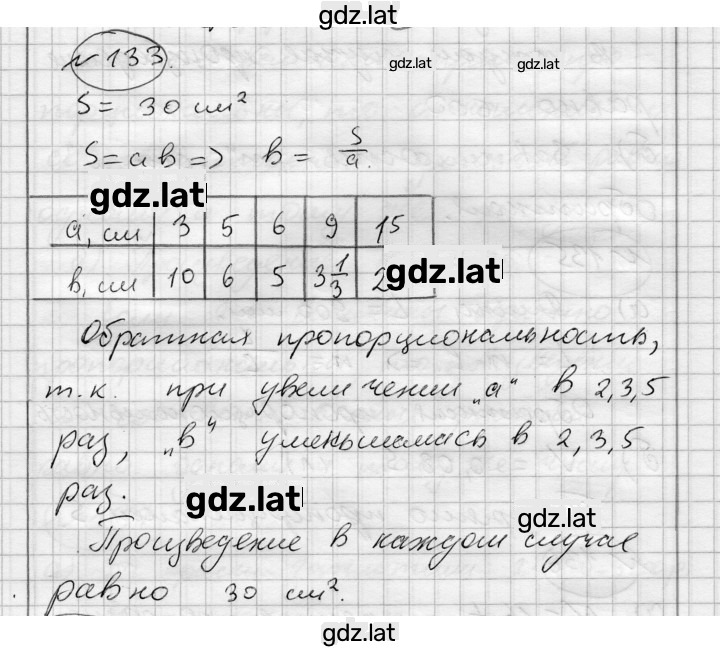 gdz.lat
№ 133.
gdz.lat gdz.lat
S = 30 см²
S = aв => в = S/a.
gdz.lat
а, см 3 5 6 9 15
в, см 10 6 5 3 1/3 2
gdz.lat
Обратная пропорциональность,
т.к. при увеличении „а“ в 2,3,5
раз, „в“ уменьшалась в 2,3,5
раз.
gdz.lat
gdz.lat
Произведение в каждом случае
равно 30 см².
gdz.lat